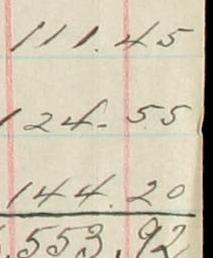 111.45
124.55
144.20
,553.92